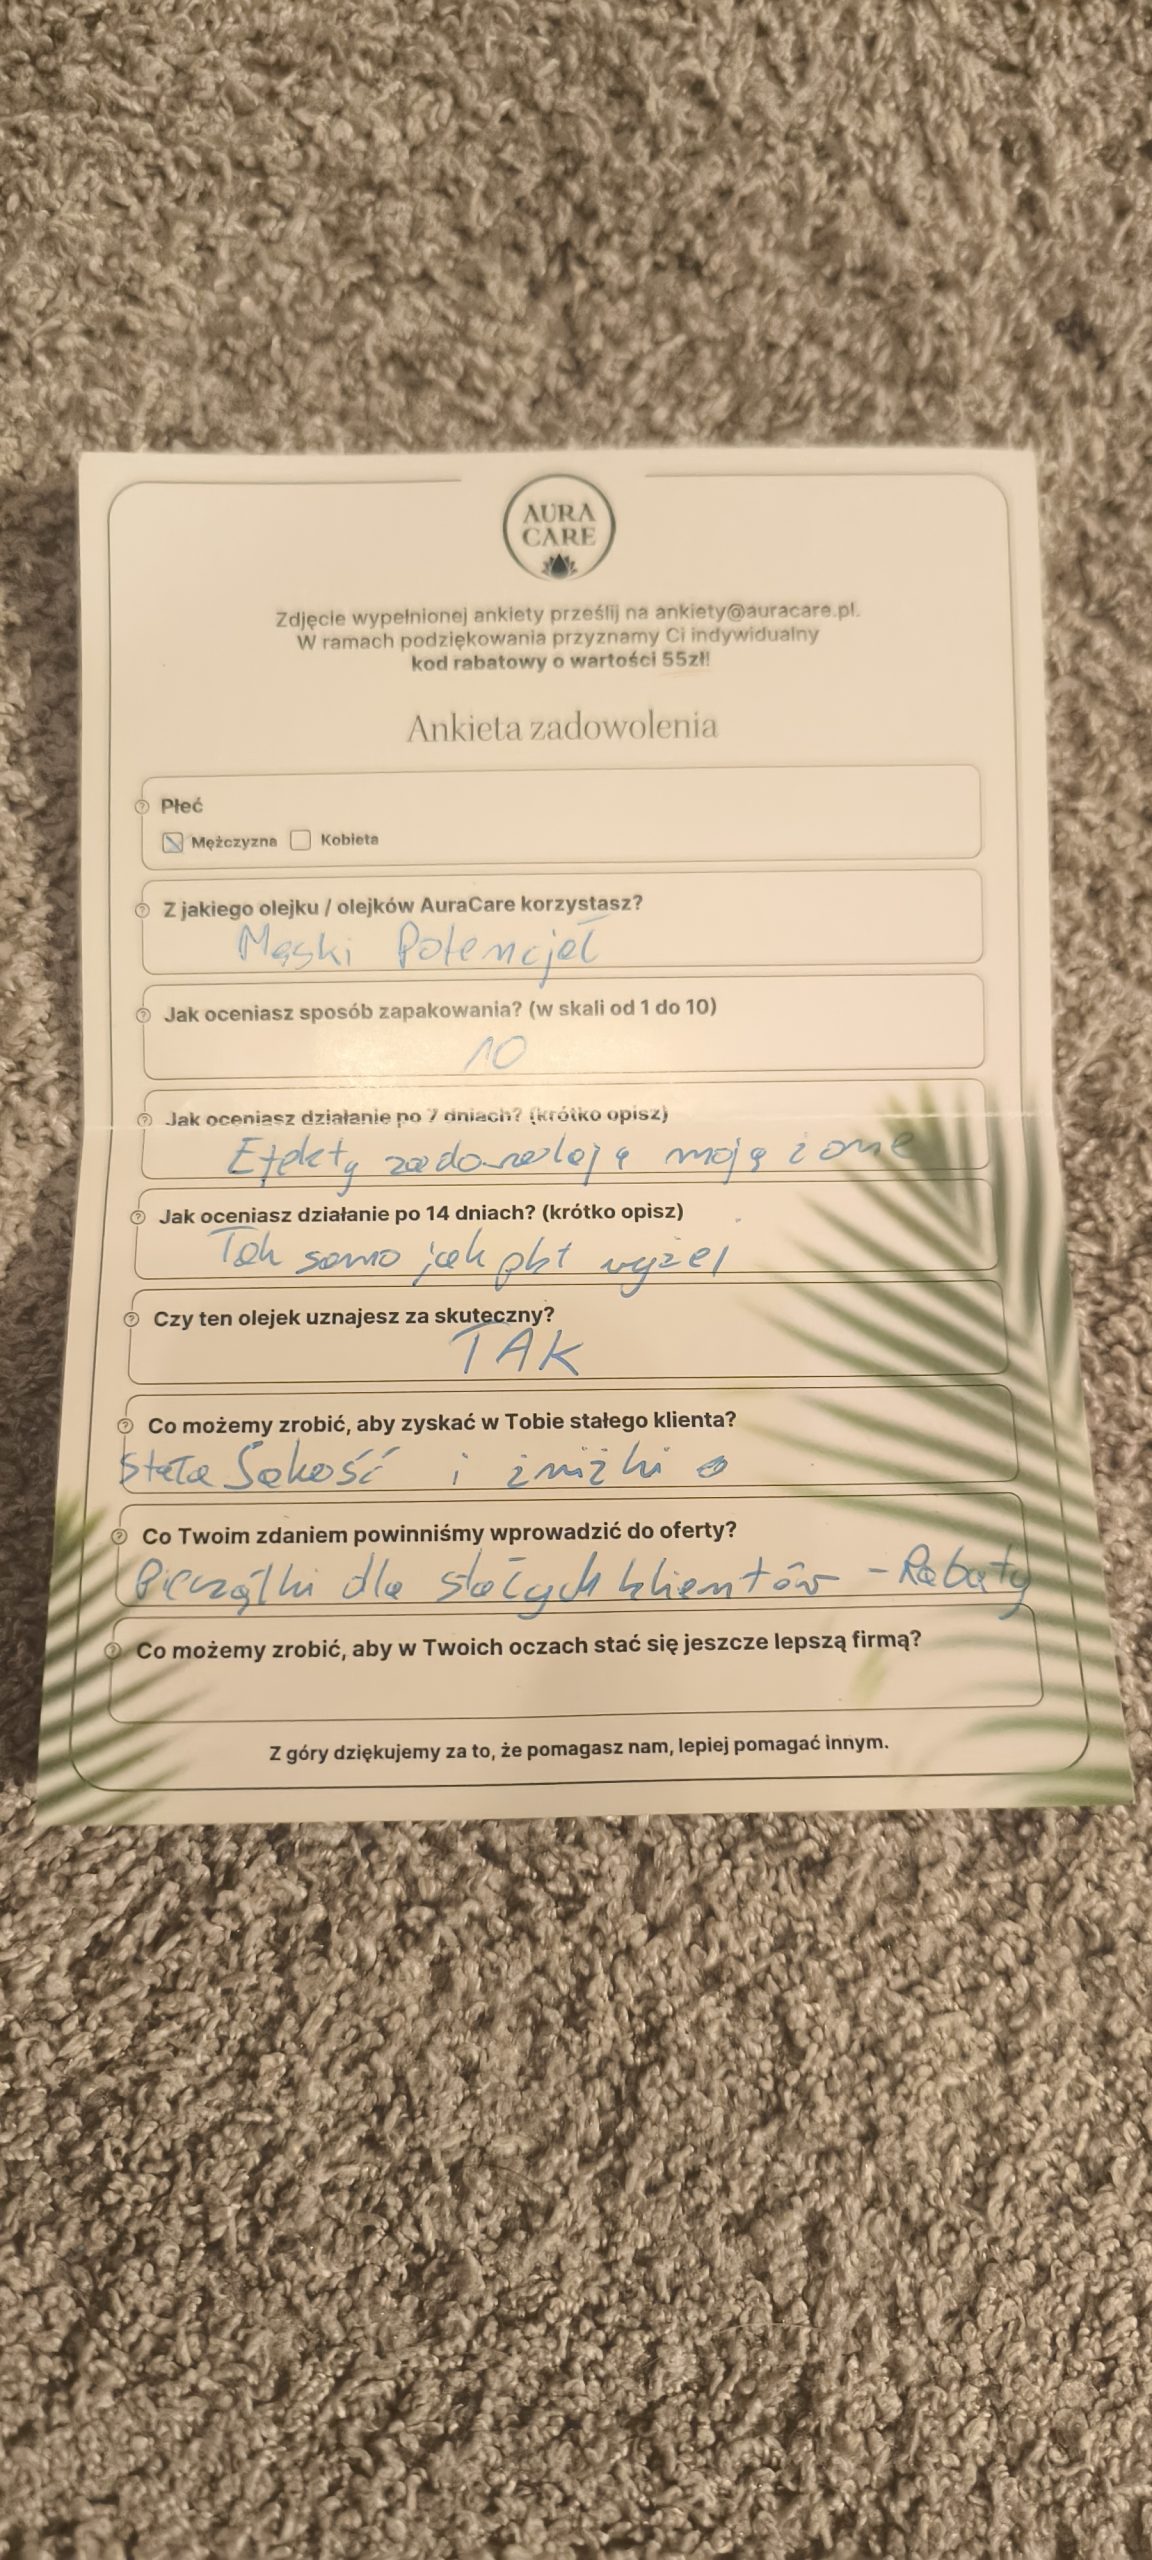 AURA
CARE
Zdjęcie wypełnionej ankiety prześlij na ankiety@auracare.pl.
W ramach podziękowania przyznamy Ci indywidualny
kod rabatowy o wartości 55zł!
Ankieta zadowolenia
Płeć
Mężczyzna Kobieta
Z jakiego olejku / olejków AuraCare korzystasz?
Męski Potencjał
Jak oceniasz sposób zapakowania? (w skali od 1 do 10)
10
Jak oceniasz działanie po 7 dniach? (krótko opisz)
Efekty zadowalają moją żone
Jak oceniasz działanie po 14 dniach? (krótko opisz)
Tak samo jak pkt wyżej
Czy ten olejek uznajesz za skuteczny?
TAK
Co możemy zrobić, aby zyskać w Tobie stałego klienta?
Stała Jakość i zniżki
Co Twoim zdaniem powinniśmy wprowadzić do oferty?
Pieczątki dla stałych klientów - Rabaty
Co możemy zrobić, aby w Twoich oczach stać się jeszcze lepszą firmą?
Z góry dziękujemy za to, że pomagasz nam, lepiej pomagać innym.